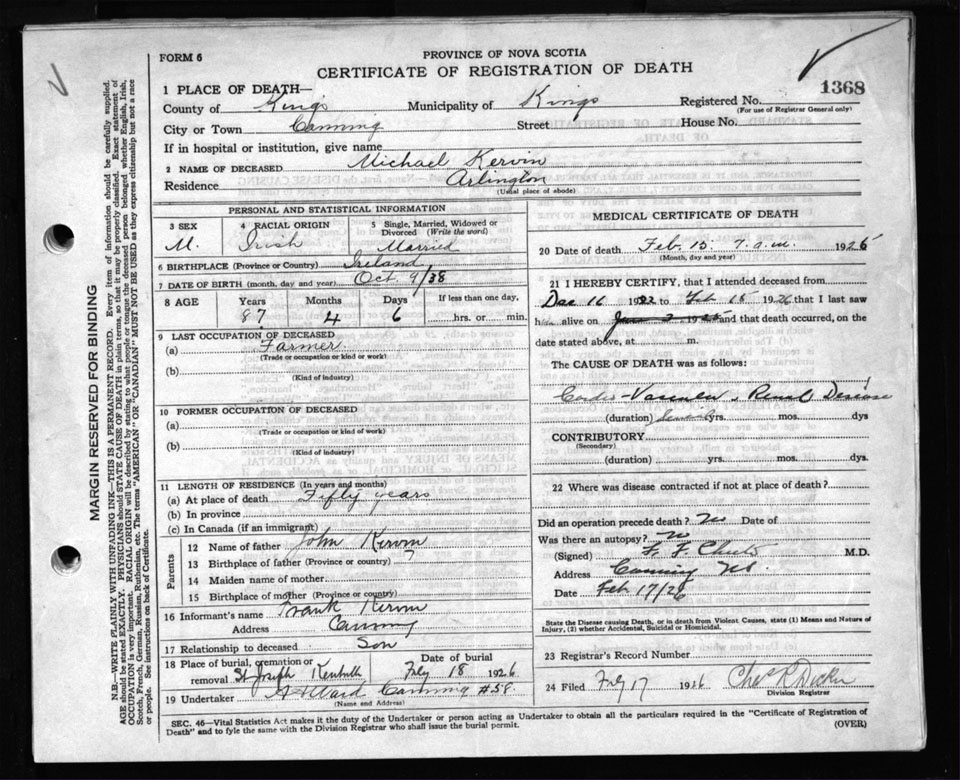 FORM 6
PROVINCE OF NOVA SCOTIA
CERTIFICATE OF REGISTRATION OF DEATH
1368
1 PLACE OF DEATH—
County of Kings Municipality of Kings Registered No.
(For use of Registrar General only)
City or Town Canning Street House No.
If in hospital or institution, give name
2 NAME OF DECEASED Michael Kervin
Residence Arlington
(Usual place of abode)
PERSONAL AND STATISTICAL INFORMATION
3 SEX 4 RACIAL ORIGIN 5 Single, Married, Widowed or Divorced (Write the word)
M. Irish Married
6 BIRTHPLACE (Province or Country) Ireland
7 DATE OF BIRTH (month, day and year) Oct. 9/38
8 AGE Years Months Days If less than one day.
87 4 6 hrs. or min.
9 LAST OCCUPATION OF DECEASED
(a) Farmer
(Trade or occupation or kind or work)
(b)
(Kind of industry)
10 FORMER OCCUPATION OF DECEASED
(a)
(Trade or occupation or kind or work)
(b)
(Kind of industry)
11 LENGTH OF RESIDENCE (In years and months)
(a) At place of death Fifty years
(b) In province
(c) In Canada (if an immigrant)
Parents
12 Name of father John Kervin
13 Birthplace of father (Province or country) ?
14 Maiden name of mother
15 Birthplace of mother (Province or country)
16 Informant's name Frank Kervin
Address Canning
17 Relationship to deceased Son
18 Place of burial, cremation or removal St Joseph Date of burial Feby 18 1926
19 Undertaker Ward Canning #58
(Name and Address)
MEDICAL CERTIFICATE OF DEATH
20 Date of death Feb. 15. 7. a.m. 1926
(Month, day and year)
21 I HEREBY CERTIFY, that I attended deceased from
Dec 16 1922 to Feb 15 1926 that I last saw
h alive on and that death occurred, on the
date stated above, at m.
The CAUSE OF DEATH was as follows:
Cardio-Vascular & Renal Disease
(duration) Several yrs. mos. dys
CONTRIBUTORY
(Secondary)
(duration) yrs. mos. dys
22 Where was disease contracted if not at place of death?
Did an operation precede death? No Date of
Was there an autopsy? No
(Signed) F. F. M.D.
Address Canning N.S.
Date Feb. 17/26
State the Disease causing Death, or in death from Violent Causes, state (1) Means and Nature of
Injury, (2) whether Accidental, Suicidal or Homicidal.
23 Registrar's Record Number
24 Filed Feby 17 1926 Chas R Decker
Division Registrar
SEC. 46—Vital Statistics Act makes it the duty of the Undertaker or person acting as Undertaker to obtain all the particulars required in the "Certificate of Registration of
Death" and to fyle the same with the Division Registrar who shall issue the burial permit.
(OVER)
MARGIN RESERVED FOR BINDING
N.B.—WRITE PLAINLY WITH UNFADING INK—THIS IS A PERMANENT RECORD. Every item of information should be carefully supplied.
AGE should be stated EXACTLY. PHYSICIANS should STATE CAUSE OF DEATH in plain terms, so that it may be properly classified. Exact statement of
OCCUPATION is very important. RACIAL ORIGIN will be described by stating to what people or tongue the deceased person belonged, whether English, Irish,
Scotch, French, German, Russian, Ruthenian, etc. The terms "AMERICAN" OR "CANADIAN" MUST NOT BE USED as they express citizenship but not a race
or people. See instructions on back of Certificate.